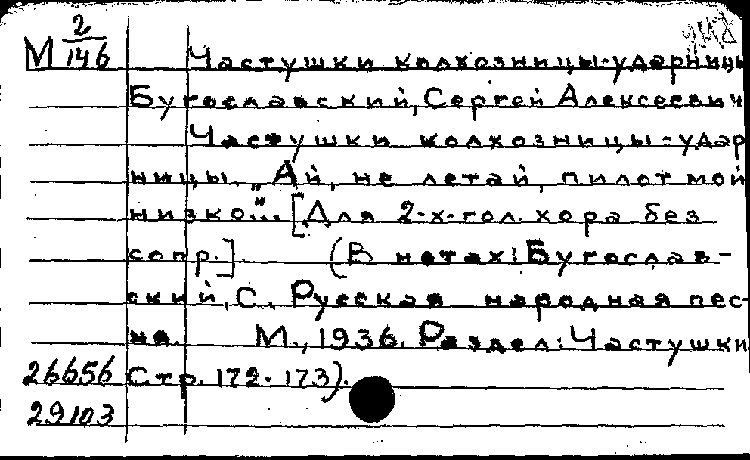 М 2/146 Частушки колхозницы-ударницы
Бугославский, Сергей Алексеевич
Частушки колхозницы-удар
ницы. „Ай, не летай, пилот мой
низко..." [Для 2-х-гол. хора без
сопр.] (В нотах: Бугослав-
ский, С. Русская народная пес-
ня. М., 1936. Раздел: Частушки
26656 Стр. 172-173).
29103